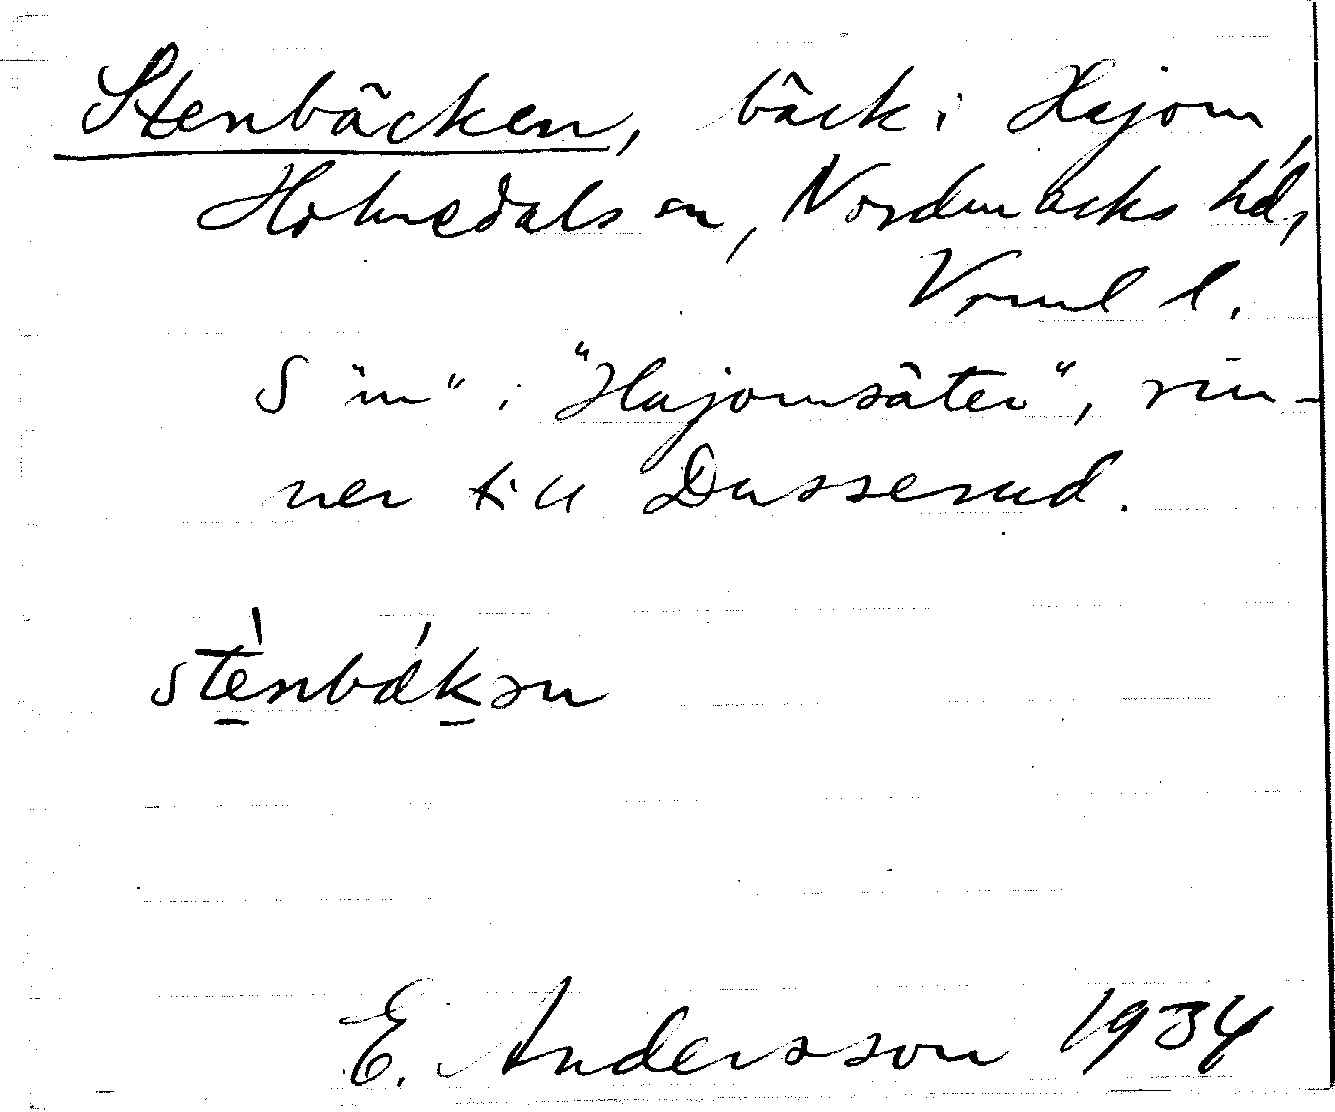 Stenbäcken, bäck i Hajom,
Holmedals sn, Nordmarks hd,
Vrml l.
S in" i "Hajomsäter", rin-
ner till Dusserud.
stènbákən
E. Andersson 1934